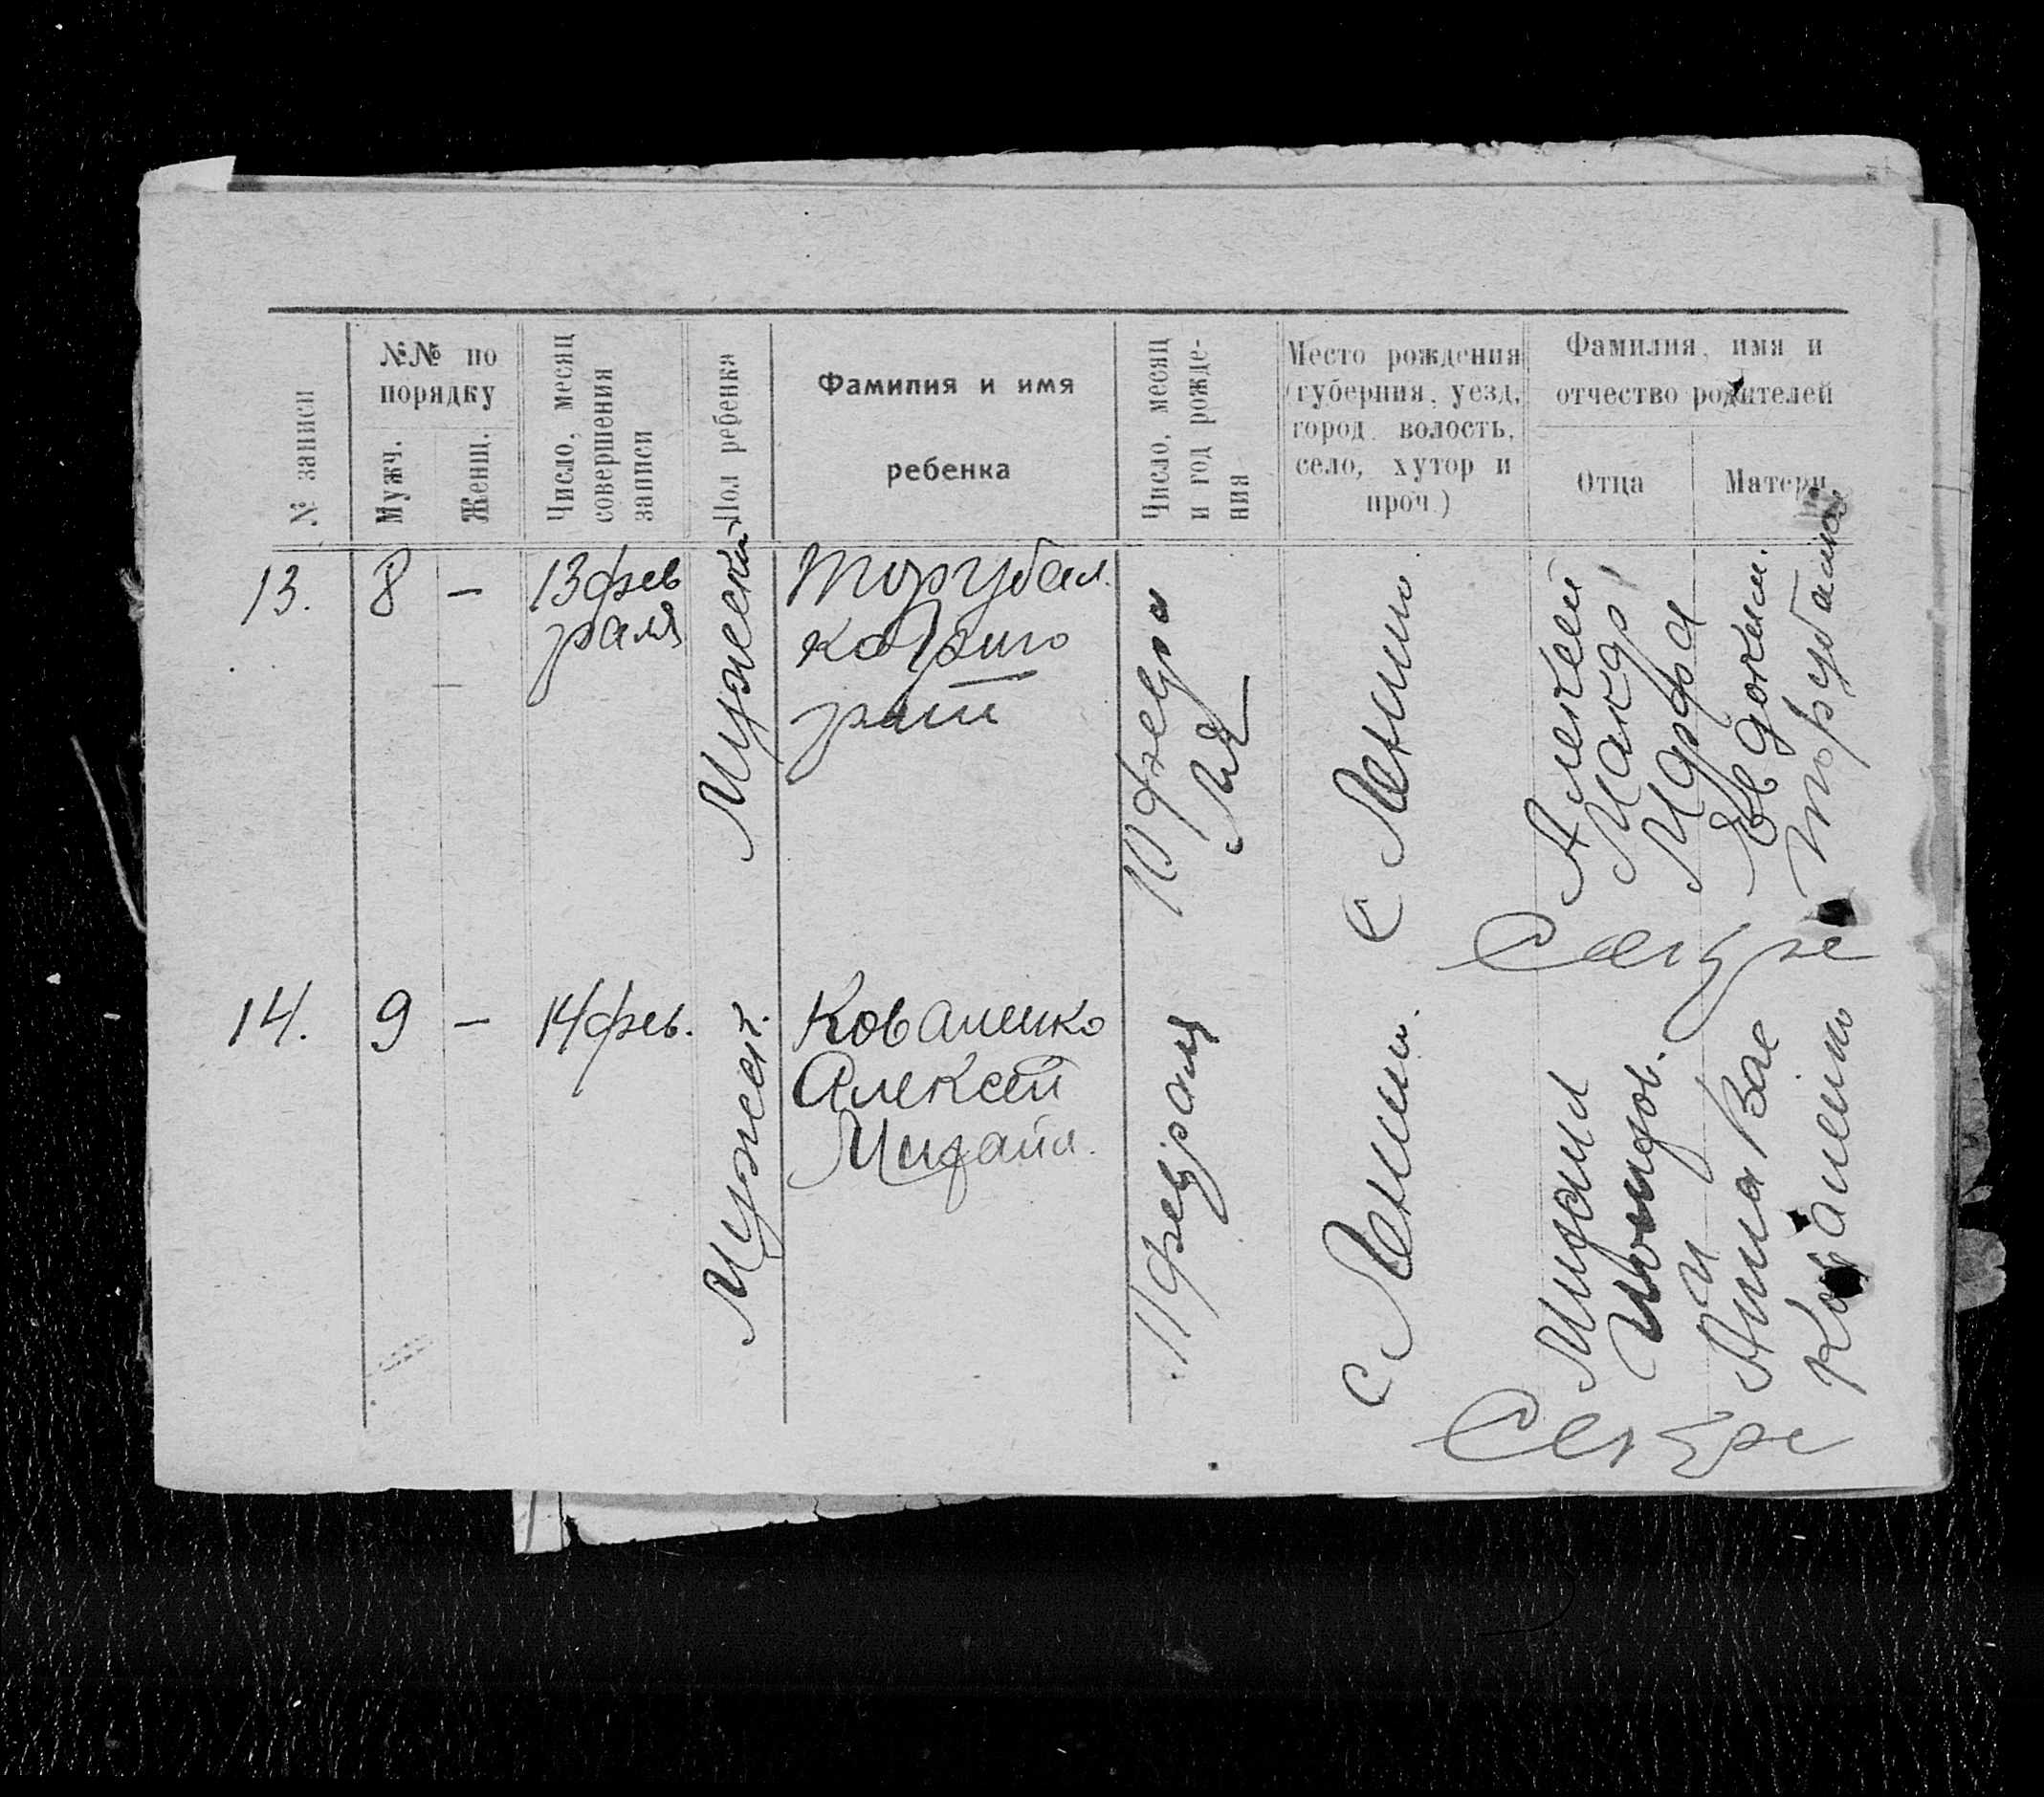 № записи
№№ по порядку
Мужч.
Женщ.
Число, месяц
совершения
записи
Пол ребенка
Фамилия и имя
ребенка
Число, месяц
и год рожде-
ния
Место рождения
(губерния, уезд,
город, волость,
село, хутор и
проч.)
Фамилия, имя и
отчество родителей
Отца
Матери
13.
8
—
13 фев
раля
Мужеский
Торубал
ко Григо
рий
10 февра
ля
с Ленин.
Алексей
Макар.
Марфа
Евдоким.
14.
9
—
14 фев.
Мужеск.
Коваленко
Алексей
Михайл.
11 февраля
с. Ленин.
Михаил
и
Анна Вас
Коваленко